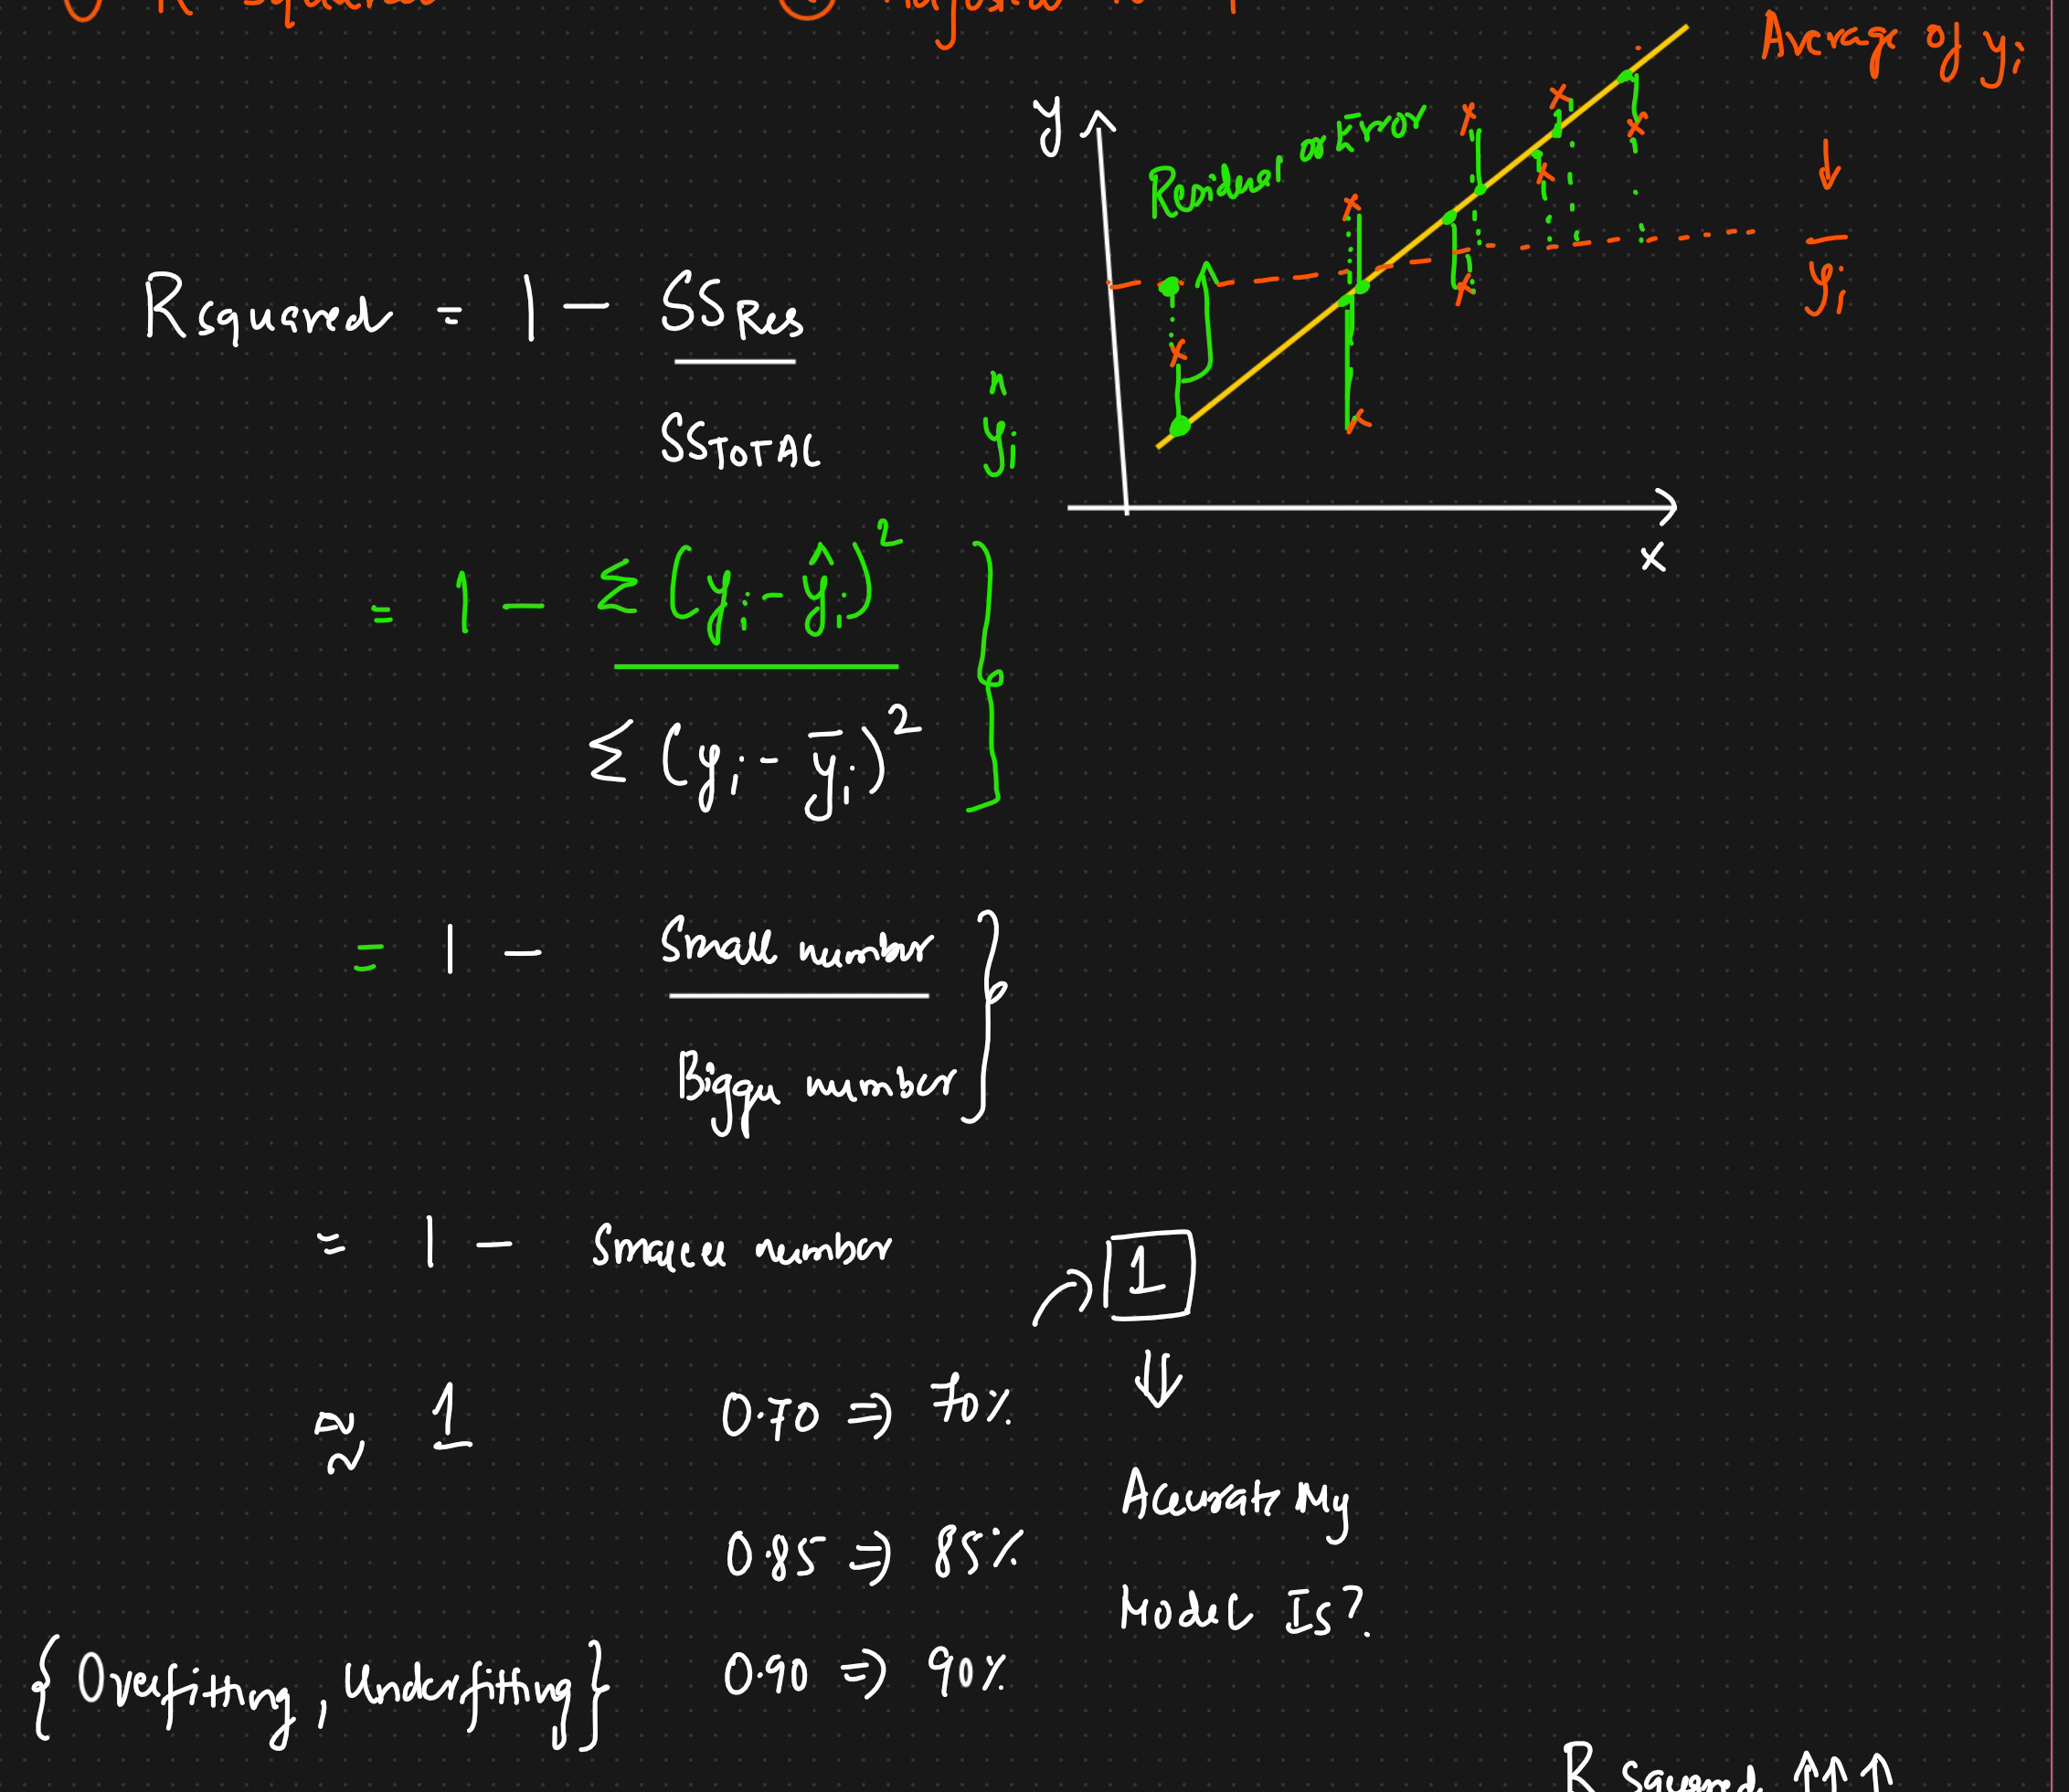 Average of yi
y
Residual or Error
ȳi
Rsquared = 1 - SSRes
SSTOTAL
^
yi
x
= 1 - Σ (yi - ŷi)²
Σ (yi - ȳi)²
= 1 - Small number
Bigger number
= 1 - Smaller number
1
≈ 1
0.70 ⇒ 70%
Accurate My
0.85 ⇒ 85%
Model Is?
{Overfitting, Underfitting}
0.90 ⇒ 90%
R Squared ↑↑↑